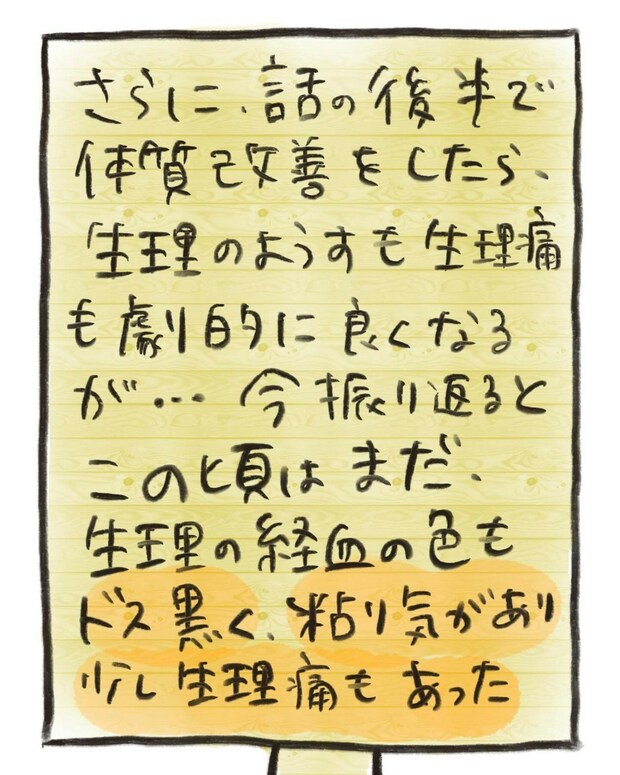 さらに、話の後半で
体質改善をしたら、
生理のようすも生理痛
も劇的に良くなる
が…今振り返ると
この頃はまだ、
生理の経血の色も
ドス黒く、粘り気があり
少し生理痛もあった